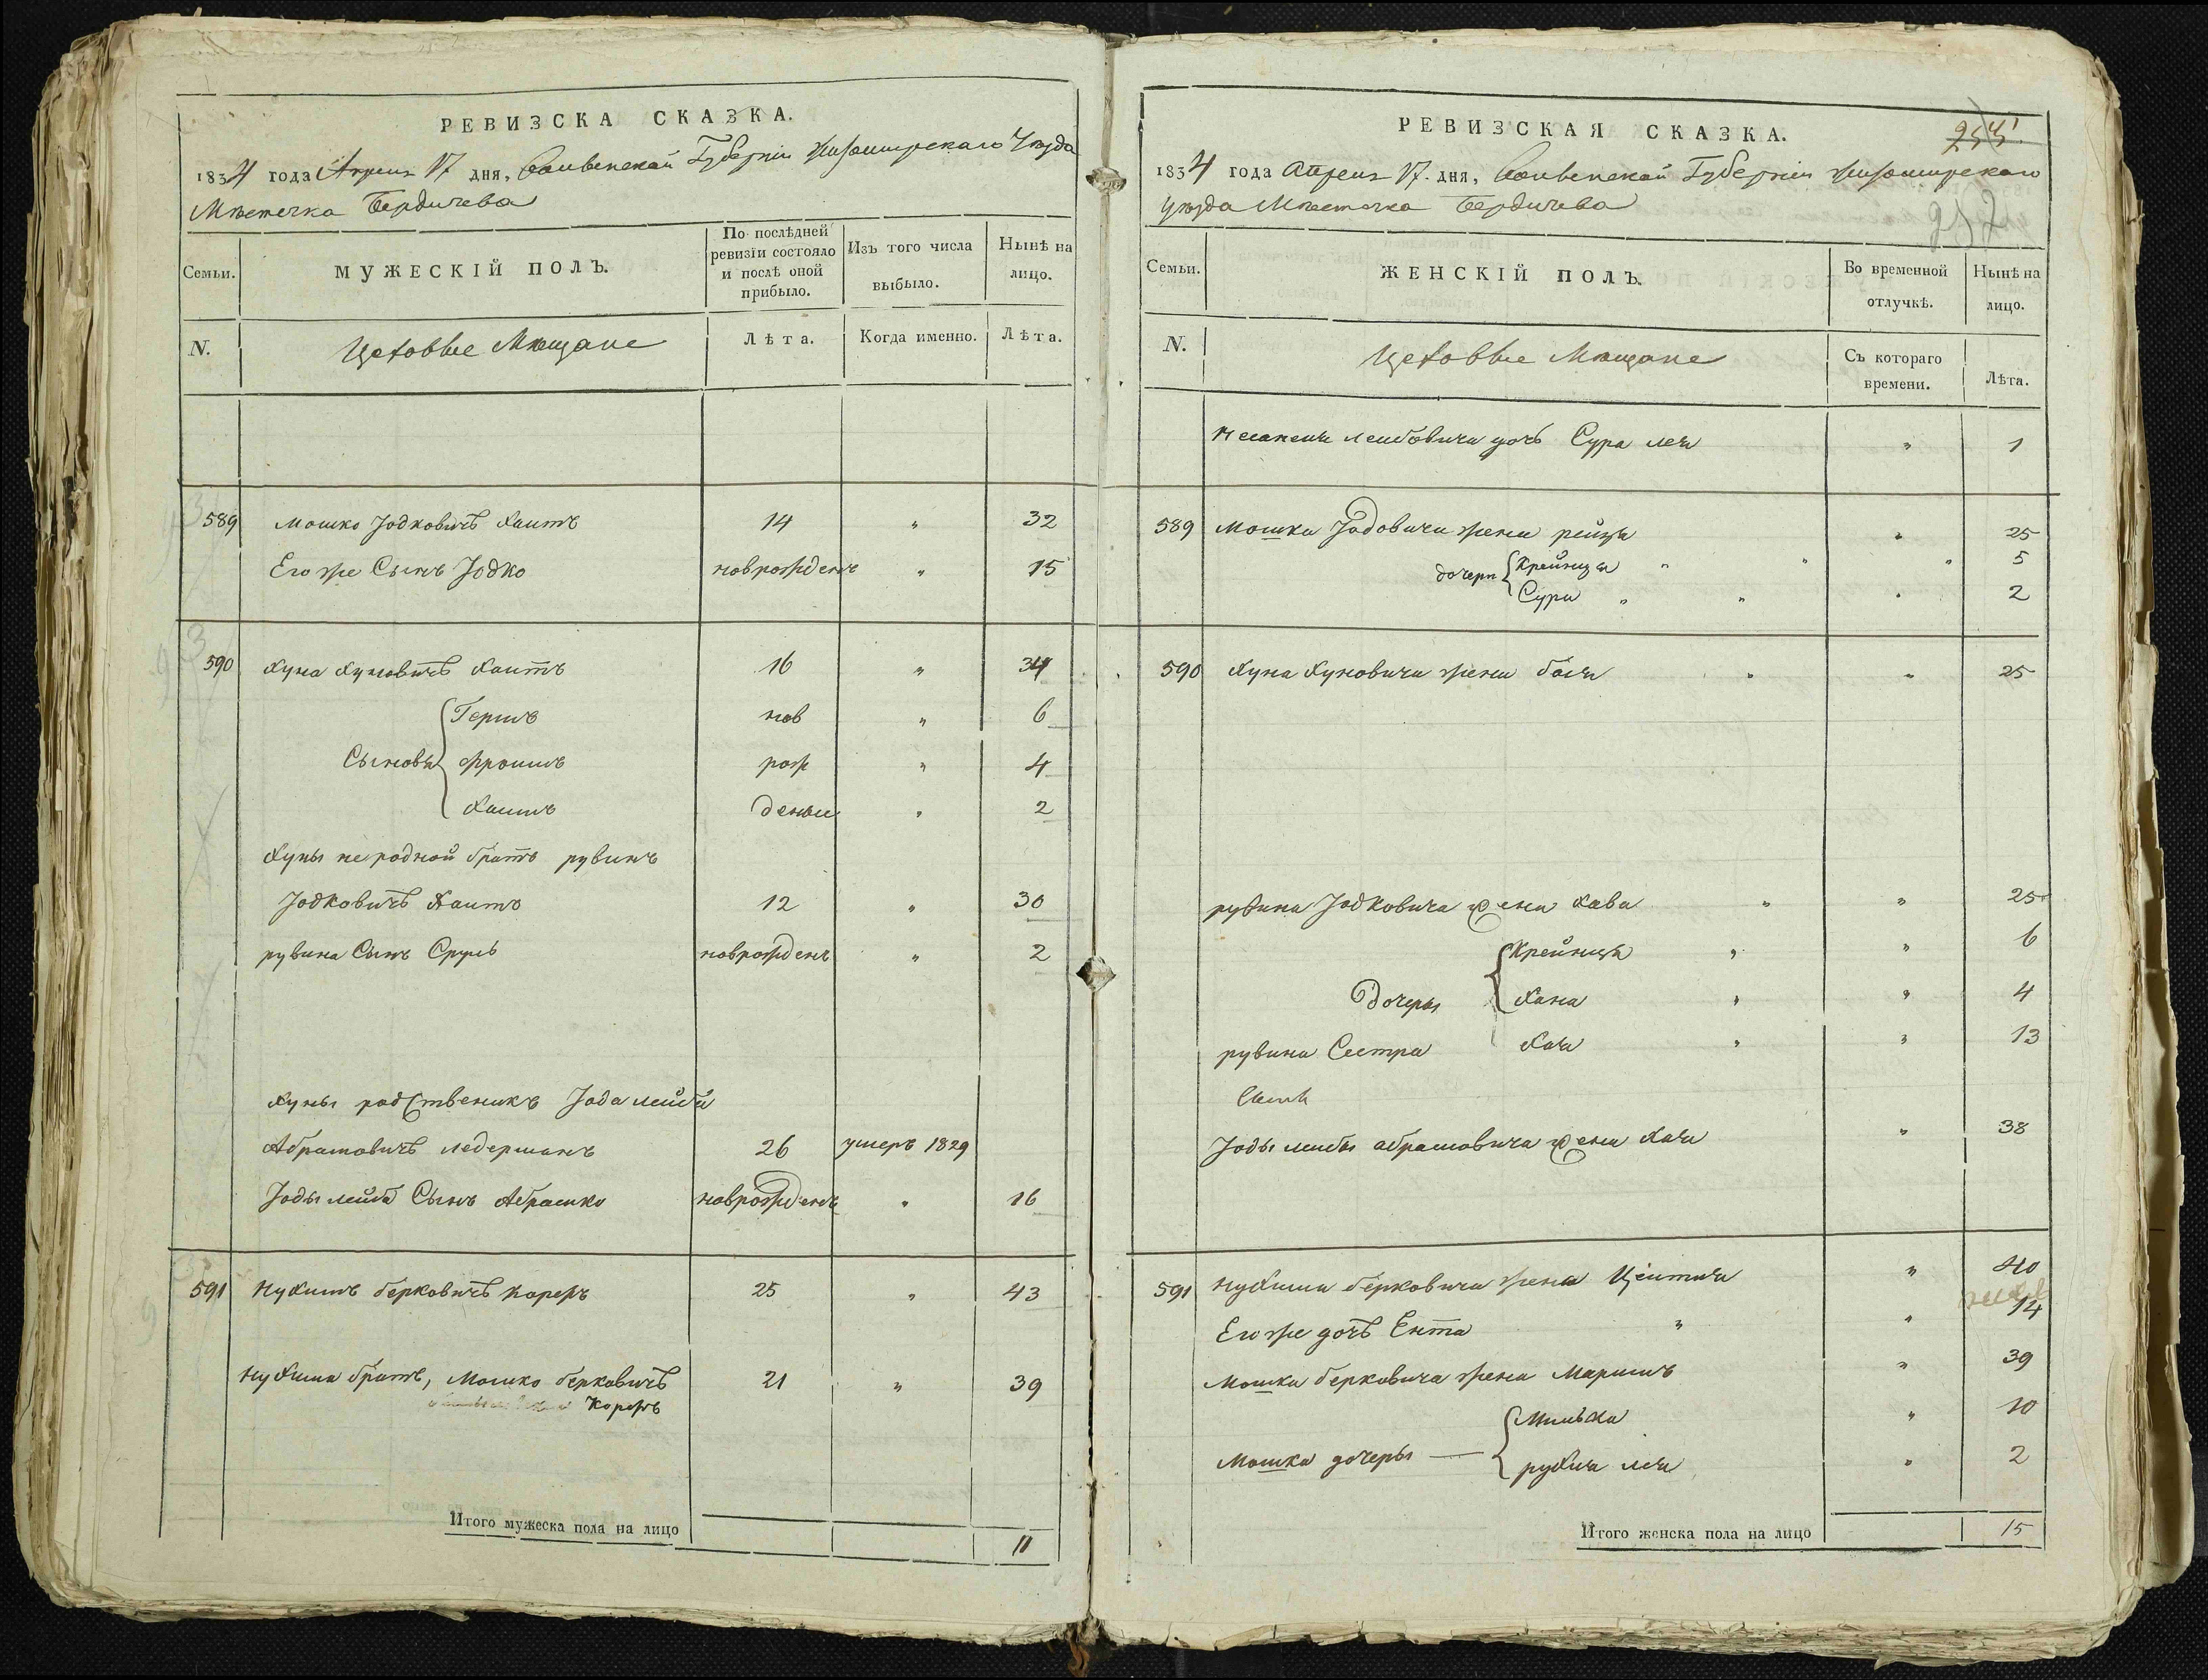 РЕВИЗСКА СКАЗКА.
1834 года Апреля 17 дня, Волынской Губерніи Житомирскаго Уезда
Местечка Бердичева
Семьи. МУЖЕСКІЙ ПОЛЪ. По послѣдней ревизіи состояло и послѣ оной прибыло. Изъ того числа выбыло. Нынѣ на лицо.
N. Цеховые Мещане Лѣта. Когда именно. Лѣта.
589 Мошко Іодковичъ Хаитъ 14 " 32
Его же Сынъ Іодко новрожденъ " 15
590 Хуна Хуновичъ Хаитъ 16 " 34
Гершъ нов " 6
Сыновья фроимъ рож " 4
Хаимъ деные " 2
Хуны неродной братъ рувинъ
Іодковичъ Хаитъ 12 " 30
рувина Сынъ Сруль новрожденъ " 2
Хуны родственикъ Іода лейба
Абрамовичъ ледерманъ 26 умеръ 1829
Іоды лейба Сынъ Абрамко новрожденъ " 16
591 Нухимъ берковичъ Корецъ 25 " 43
Нухима братъ, Мошко берковичъ 21 " 39
Корецъ
Итого мужеска пола на лицо 11
РЕВИЗСКАЯ СКАЗКА.
1834 года Апреля 17. дня, Волынской Губерніи Житомирскаго
Уезда Местечка Бердичева
257
Семьи. ЖЕНСКІЙ ПОЛЪ. Во временной отлучкѣ. Нынѣ на лицо.
N. Цеховые Мещане Съ котораго времени. Лѣта.
лейбовича дочь Сура лея " 1
589 Мошка Іодовича жена рейзя " 25
дочери Крейнця " " " 5
Сура " " " 2
590 Хуна Хуновича жена бася " " 25
рувина Іодковича жена Хава " " 25
Крейнця " " 6
Дочеры Хана " " 4
рувина Сестра Хая " " 13
Іоды лейбы абрамовича жена Хая " 38
591 Нухима берковича жена Цеитля " 40
Его же дочъ Ента " " 14
Мошка берковича жена Маримъ " 39
Милька " 10
Мошка дочеры — рухля лея " 2
Итого женска пола на лицо 15